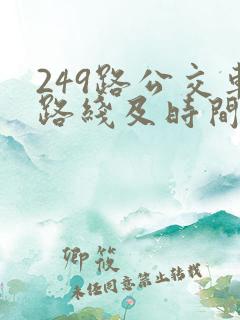 249路公交車
路綫及時間
卿筱
未经同意禁止转载